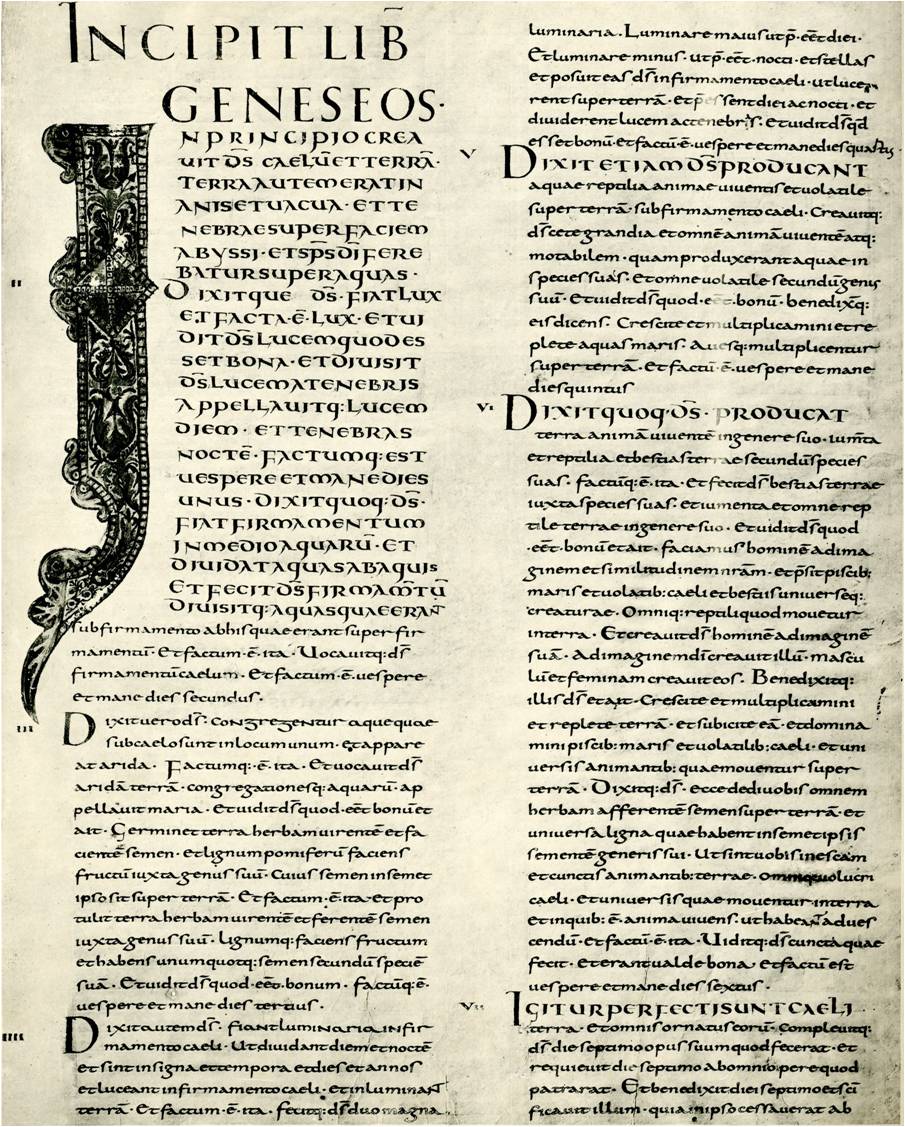 INCIPIT LIB̅
GENESEOS·
IN PRINCIPIO CREA
UIT D̅S CAELU̅ ET TERRA̅·
TERRA AUTEM ERAT IN
ANIS ET UACUA· ET TE
NEBRAE SUPER FACIEM
ABYSSI· ET SP̅S D̅I FERE
BATUR SUPER AQUAS·
II DIXITQUE D̅S· FIAT LUX
ET FACTA· E̅· LUX· ET UI
DIT D̅S LUCEM QUOD ES
SET BONA· ET DIUISIT
D̅S LUCEM A TENEBRIS
APPELLAUITQ: LUCEM
DIEM· ET TENEBRAS
NOCTE̅· FACTUMQ: EST
UESPERE ET MANE DIES
UNUS· DIXIT QUOQ: D̅S·
FIAT FIRMAMENTUM
IN MEDIO AQUARU̅· ET
DIUIDAT AQUAS AB AQUIS
ET FECIT D̅S FIRMAM̅TU̅
DIUISITQ: AQUAS QUAE ERANT
sub firmamento ab his quae erant super fir
mamentu̅· Et factum· e̅· ita· Uocauitq: d̅s
firmamentu̅ caelum· Et factum· e̅· uespere
et mane dies secundus·
III Dixit uero d̅s· congregentur aque quae
sub caelo sunt in locum unum· et appare
at arida· Factumq:· e̅· ita· Et uocauit d̅s
arida̅ terra̅· congregationesq: aquaru̅· ap
pellauit maria· Et uidit d̅s quod· ee̅t bonu̅ et
ait· Germinet terra herbam uirente̅ et fa
ciente̅ semen· et lignum pomiferu̅ faciens
fructu̅ iuxta genus suu̅· Cuius semen in semet
ipso sit super terra̅· Et factum· e̅· ita· et pro
tulit terra herbam uirente̅ et ferente̅ semen
iuxta genus suu̅· Lignumq: faciens fructum
et habens unumquotq: semen secundu̅ specie̅
sua̅· Et uidit d̅s quod· ee̅t· bonum· Factu̅q: e̅·
uespere et mane dies tertius·
IIII Dixit autem d̅s· fiant luminaria in fir
mamento caeli· Ut diuidant diem et nocte̅
et sint in signa et tempora et dies et annos
et luceant in firmamento caeli· et inluminant
terra̅· Et factum· e̅· ita· fecitq: d̅s duo magna
luminaria· Luminare maius ut p̅· ee̅t diei·
Et luminare minus· ut p̅· ee̅t· nocti· et stellas
et posuit eas d̅s in firmamento caeli· ut luce
rent super terra̅· Et p̅essent diei ac nocti· et
diuiderent lucem ac tenebris· Et uidit d̅s q̅d
esset bonu̅· et factu̅· e̅· uespere et mane dies quartus
V DIXIT ETIAM D̅S PRODUCANT
aquae reptilia animae uiuentis et uolatile
super terra̅· sub firmamento caeli· Creauitq:
d̅s cete grandia et omne̅ anima̅ uiuente̅ atq:
motabilem· quam produxerant aquae in
species suas· Et omne uolatile secundu̅ genus
suu̅· Et uidit d̅s quod· ee̅t· bonu̅· benedix̅q:
eis dicens· Crescite et multiplicamini et re
plete aquas maris· Auesq: multiplicentur
super terra̅· Et factu̅· e̅· uespere et mane
dies quintus
VI DIXIT QUOQ· D̅S· PRODUCAT
terra anima̅ uiuente̅ in genere suo· ium̅ta
et reptilia et bestias terrae secundu̅ species
suas· factu̅q: e̅· ita· Et fecit d̅s bestias terrae
iuxta species suas· et iumenta et omne rep
tile terrae in genere suo· Et uidit d̅s quod
·ee̅t· bonu̅ et ait· faciamus homine̅ ad ima
ginem et similitudinem n̅ram· et p̅sit piscib:
maris et uolatib: caeli et bestiis uniuerseq:
creaturae· Omniq: reptili quod mouetur
in terra· Et creauit d̅s homine̅ ad imagine̅
sua̅· Ad imaginem d̅i creauit illu̅· mascu
lu̅ et feminam creauit eos· Benedixitq:
illis d̅s et ait· Crescite et multiplicamini
et replete terra̅· et subicite ea̅· et domina
mini piscib: maris et uolatilib: caeli· et uni
uersis animantib: quae mouentur super
terra̅· Dixitq: d̅s· ecce dedi uobis omnem
herbam afferente̅ semen super terra̅· et
uniuersa ligna quae habent in semet ipsis
semente̅ generis sui· Ut sint uobis in escam
et cunctis animantib: terrae· omniquolucri
caeli· et uniuersis quae mouentur in terra
et in quib: e̅· anima uiuens· ut habeant ad ues
cendu̅· et factu̅· e̅· ita· Uiditq: d̅s cuncta quae
fecit· Et erant ualde bona· et factu̅ est
uespere et mane dies sextus·
VII IGITUR PERFECTI SUNT CAELI
terra· Et omnis ornatus eoru̅· Compleuitq:
d̅s die septimo opus suum quod fecerat· et
requieuit die septimo ab omni opere quod
patrarat· Et benedixit diei septimo et s̅ci
ficauit illum· quia in ipso cessauerat ab